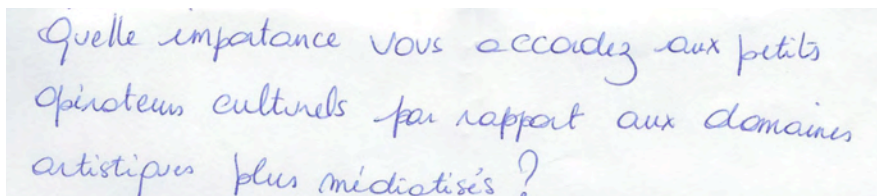 Quelle importance vous accordez aux petits
opérateurs culturels par rapport aux domaines
artistiques plus médiatisés ?